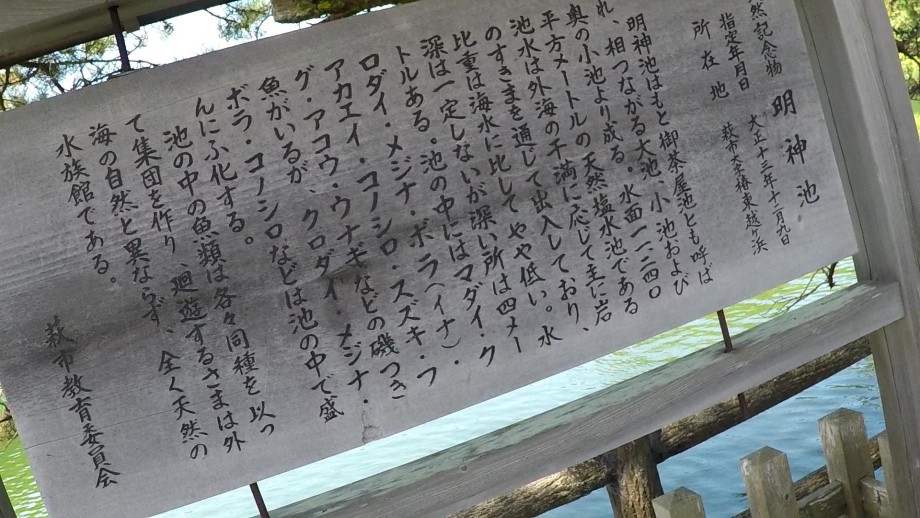 然記念物 明神池
指定年月日 大正十三年十二月九日
所在地 萩市大字椿東越ヶ浜
明神池はもと御茶屋池とも呼ば
れ、相つながる大池、小池および
奥の小池より成る。水面一一二四〇
平方メートルの天然塩水池である
池水は外海の干満に応じて主に岩
のすきまを通じて出入しており、
比重は海水に比してやや低い。水
深は一定しないが深い所は四メー
トルある。池の中にはマダイ・ク
ロダイ・メジナ・ボラ(イナ)・
コノシロ・スズキ・フ
アカエイ・
グ・アコウ・ウナギなどの磯つき
魚がいるが、クロダイ・メジナ・
ボラ・コノシロなどは池の中で盛
んにふ化する。
池の中の魚類は各々同種を以っ
て集団を作り、廻遊するさまは外
海の自然と異ならず、全く天然の
水族館である。
萩市教育委員会